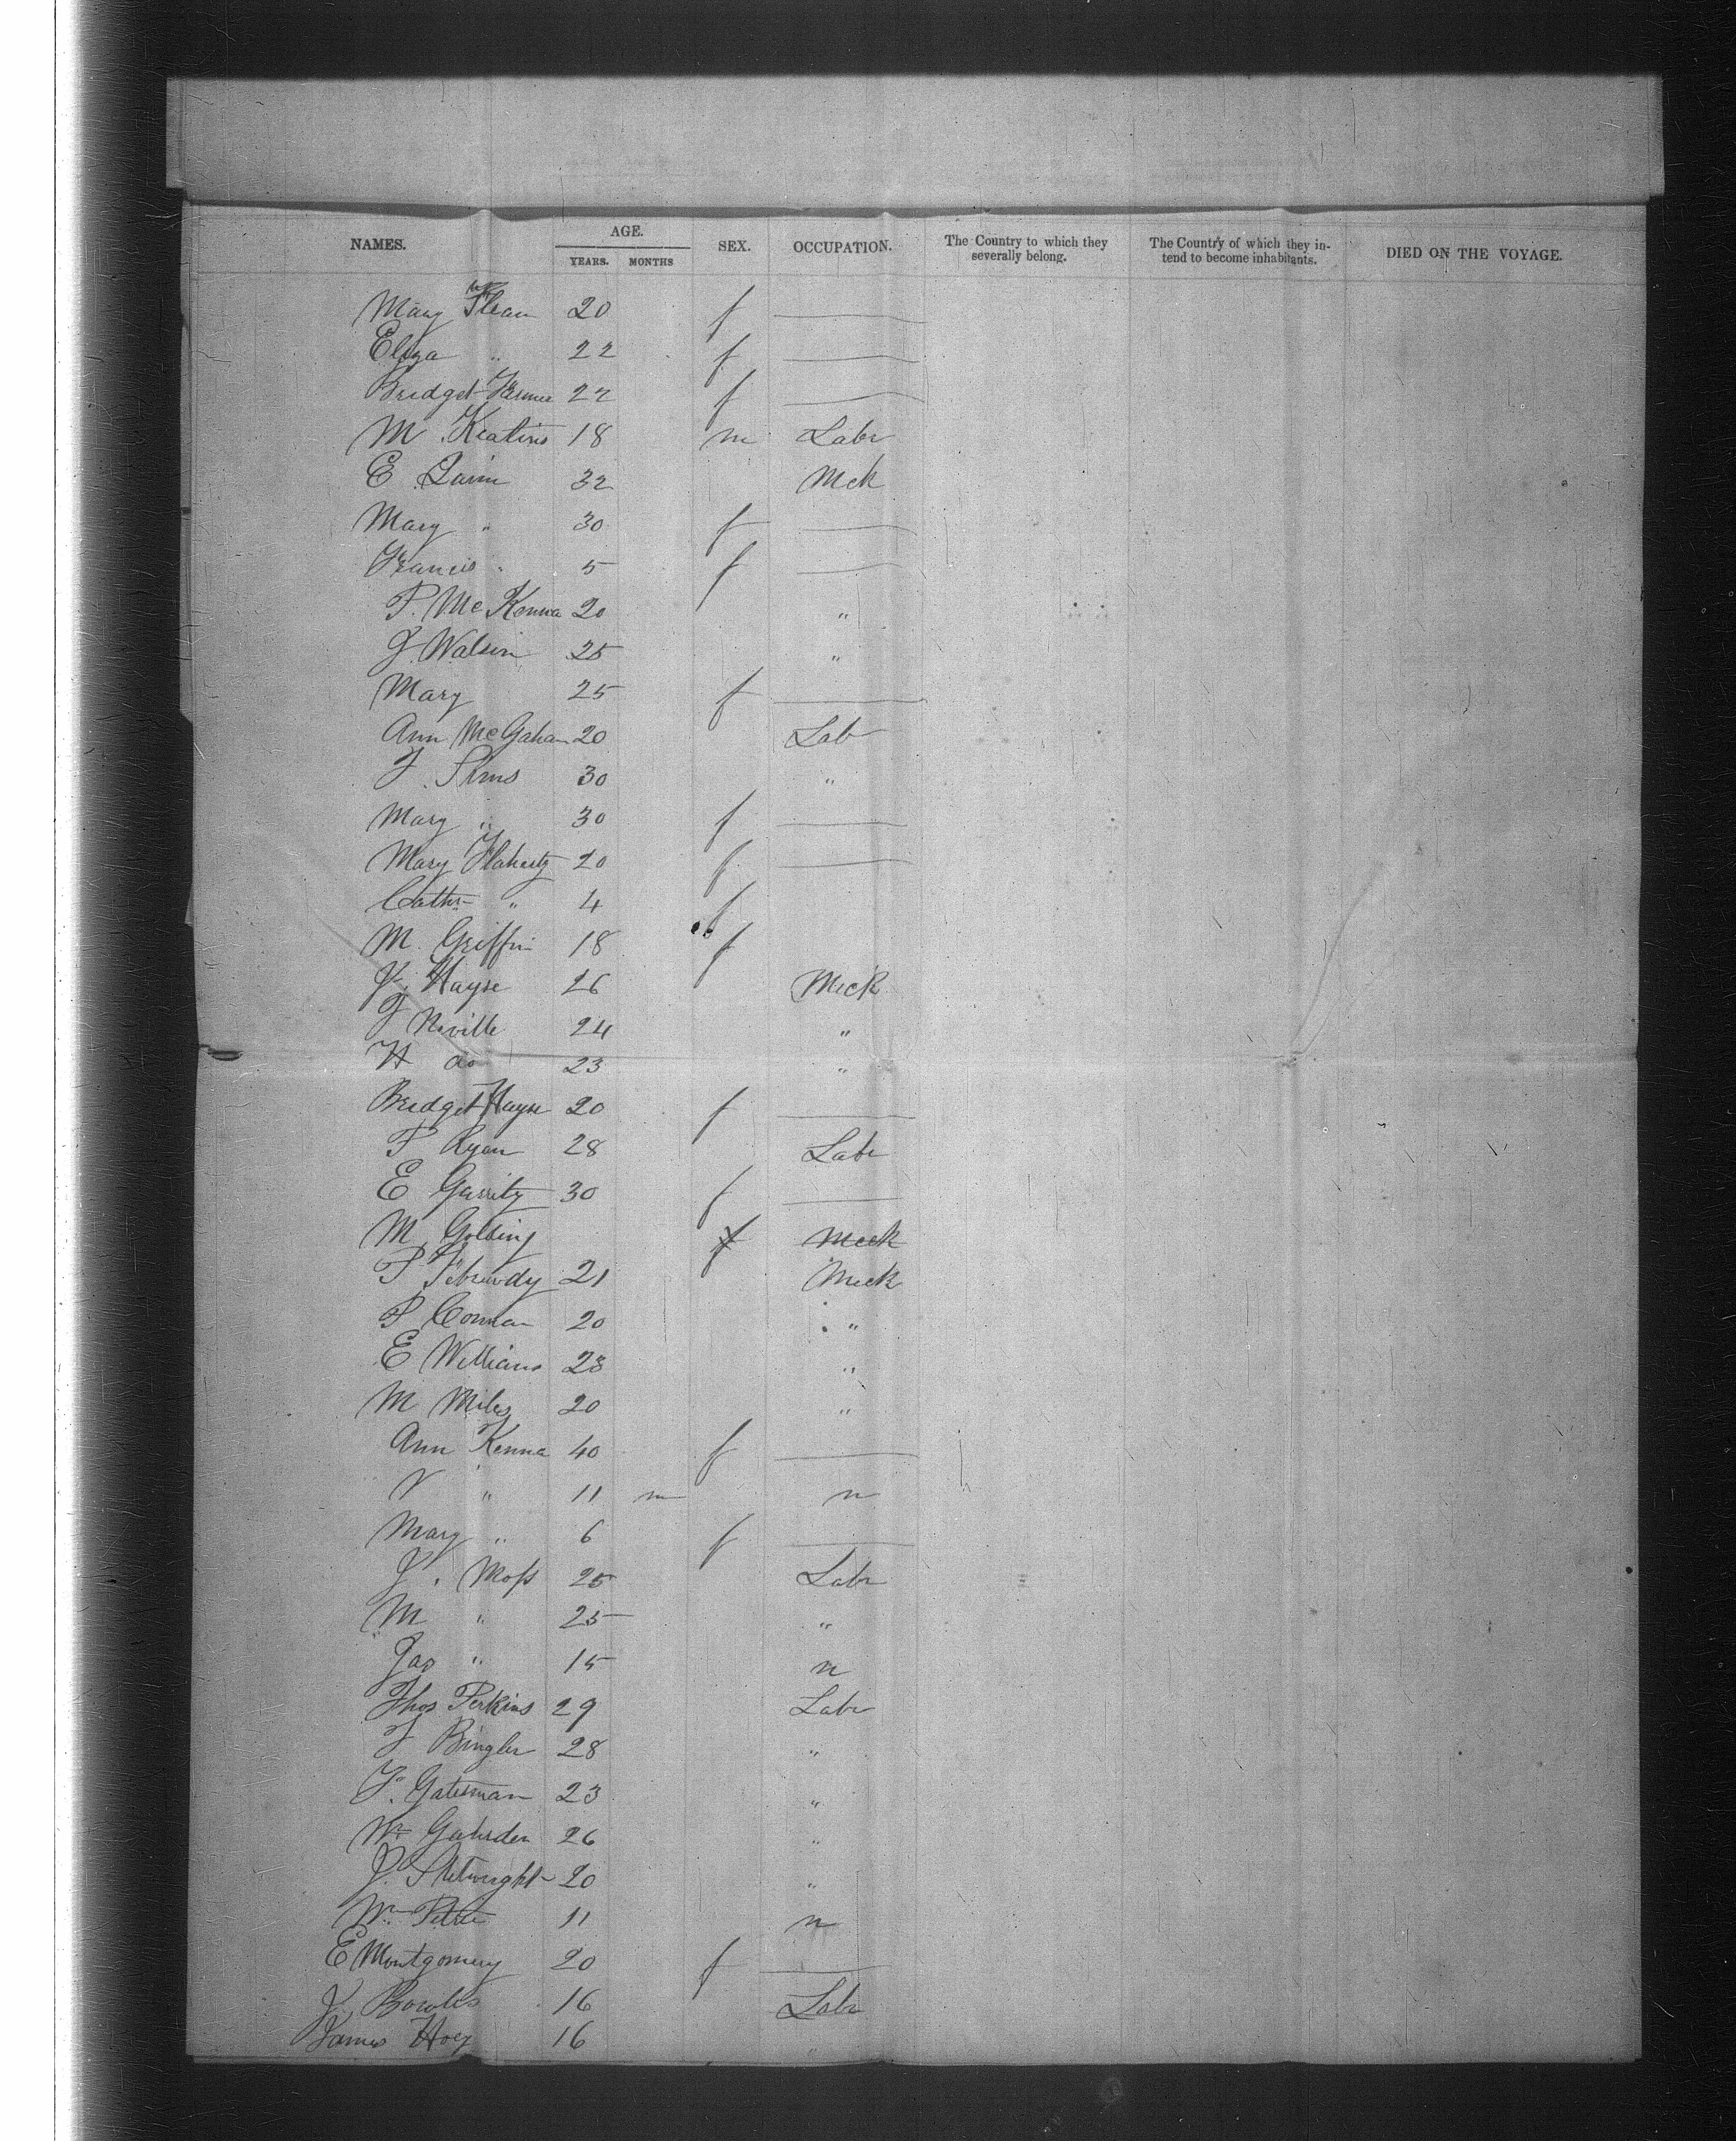 NAMES. AGE. SEX. OCCUPATION. The Country to which they severally belong. The Country of which they intend to become inhabitants. DIED ON THE VOYAGE.
YEARS. MONTHS
Mary 20 f
Eliza " 22 f
Bridget 22 f
M. Keatins 18 m Labr
E 32 Mck
Mary " 30 f
Francis " 5 f
P. McKenna 20 "
J. Watson 25 "
Mary 25 f
Ann McGahan 20 Lab
J. Sims 30 "
Mary " 30 f
Mary Flaherty 20 f
Cathr " 4 f
M. Griffin 18 f
J. Hayse 26 Meck
J Neville 24 "
H do 23 "
Bridget Hayse 20 f
P Ryan 28 Labr
E Garrity 30 f
M. Golding f Meck
P 21 Meck
P Connan 20 "
E Williams 28 "
M Miles 20 "
Ann Kenna 40 f
" 11 m n
Mary " 6 f
J. Moss 25 Labr
M " 25 "
Jas " 15 n
Thos Perkins 29 Labr
J Bingler 28 "
F. Gatesman 23 "
Wm 26 "
J. 20 "
Wm Petrie 11 n
E Montgomery 20 f
J. Bowles 16 Labr
James Hoey 16 "